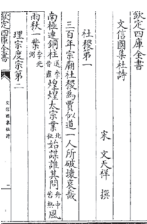 欽定四庫全書
文信國集杜詩
宋 文天祥 撰
社稷第一
三百年宗廟社稷為賈似道一人所破壞哀哉
南極連銅柱 煌煌太宗業 北征 始謀誰其間 風
雨秋一葉
理宗度宗第二
欽定四庫全書
文信國集杜詩
一